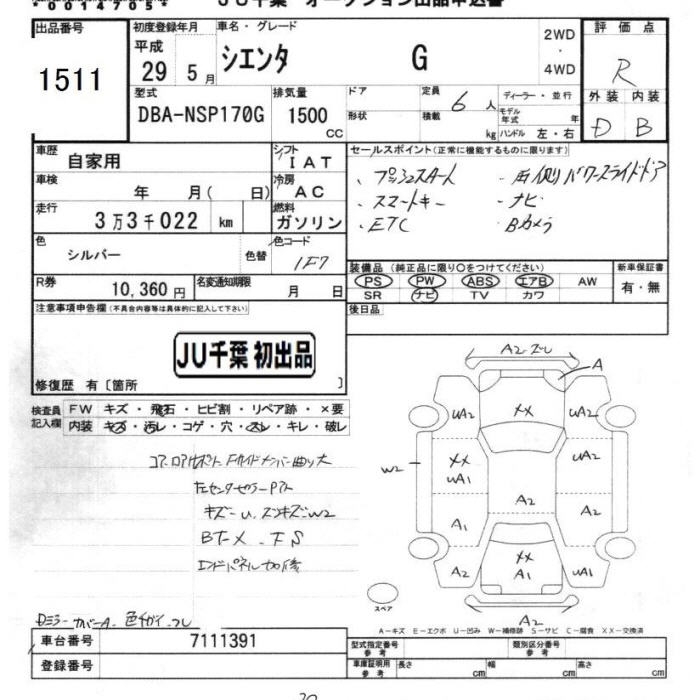 JU千葉 オークション出品申込書
出品番号
1511
初度登録年月
平成
29 5月
車名・グレード
シエンタ G
2WD
・
4WD
評価点
R
外装 内装
D B
型式
DBA-NSP170G
排気量
1500
CC
ドア
形状
定員
6人
積載
kg
ディーラー・並行
モデル年式 年
ハンドル 左・右
車歴
自家用
シフト
IAT
車検
年 月( 日)
冷房
AC
走行
3万3千022 km
燃料
ガソリン
色
シルバー
色替
色コード
1F7
R券
10,360円
名変通知期限
月 日
セールスポイント(正常に機能するものに限ります)
、プッシュスタート
、スマートキー
、ETC
・両側パワースライドドア
・ナビ
・Bカメラ
装備品 (純正品に限り○をつけてください)
PS PW ABS エアB AW
SR ナビ TV カワ
新車保証書
有・無
後日品
注意事項申告欄(不具合内容等は具体的に記入して下さい)
JU千葉 初出品
修復歴 有〔箇所 〕
検査員
記入欄
FW キズ・飛石・ヒビ割・リペア跡・×要
内装 キズ・汚レ・コゲ・穴・スレ・キレ・破レ
左センターピラー
キズーU
BT-X
エンドパネル
Dミラーカバー A 色チガイ
A2
A
UA2 XX UA2
W2
XX
UA1
UA2
A2
A1 A2
XX
A1
A2 UA1
A2
スペア
A-キズ E-エクボ U-凹み W-補修跡 S-サビ C-腐食 XX-交換済
車台番号
7111391
登録番号
型式指定番号
参考
類別区分番号
参考
車庫証明用
参考
長さ cm 幅 cm 高さ cm